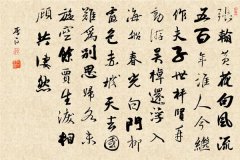 張翰黃花句風流
五百年誰人今繼
作夫子世稱賢再
動遊吳棹還浮入
海船春光白門柳
霞色赤城天去國
難為別思歸各未
旋空餘賈生淚相
顧共淒然